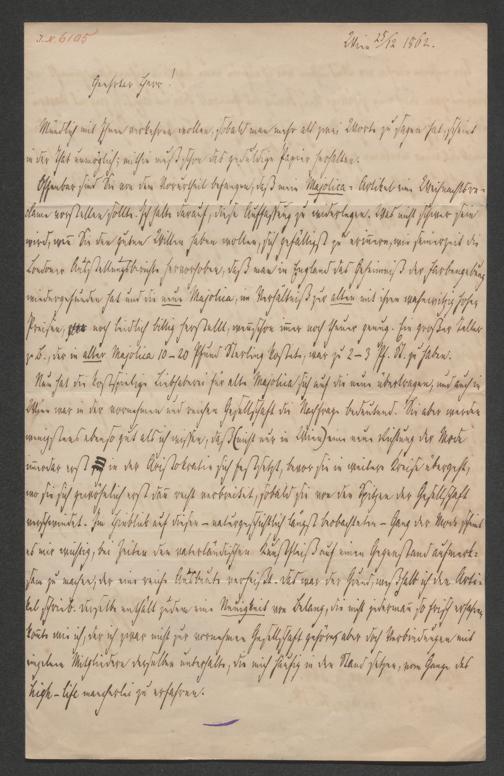 J.N. 6105
Wien 25/12 1862.
Geehrter Herr!
Mündlich mit Ihnen verkehren wollen, sobald man mehr als zwei Worte zu sagen hat, scheint
in der That unmöglich; mithin muß schon das geduldige Papier herhalten.
Offenbar sind Sie von dem Vorurtheil befangen, daß mein Majolica-Artikel eine Weihnachtsre-
clame vorstellen sollte. Ich habe darauf, diese Auffassung zu widerlegen. Was nicht schwer sein
wird, wenn Sie den guten Willen haben wollen, sich gefälligst zu erinnern, wie seinerzeit die
Londoner Ausstellungsberichte hervorhoben, daß man in England das Geheimniß der Farbengebung
wiedergefunden hat und die neue Majolica, im Verhältniß zur alten mit ihren wahnwitzig hohen
Preisen, noch leidlich billig herstellt, wenn schon immer noch theuer genug. Ein großer Teller
z.B., der in alter Majolica 10-20 Pfund Sterling kostete, war zu 2-3 Pf. St. zu haben.
Nun hat die kostspielige Liebhaberei für alte Majolica sich auf die neue übertragen, und auch in
Wien war in der vornehmen und reichen Gesellschaft die Nachfrage bedeutend. Sie aber werden
wenigstens ebenso gut als ich wissen, daß (nicht nur in Wien) eine neue Richtung der Mode
immer erst in der Aristokratie sich festsetzt, bevor sie in weitere Kreise übergeht,
wo sie sich gewöhnlich erst dann recht verbreitet, sobald sie von den Spitzen der Gesellschaft
verschwindet. Im Hinblick auf diesen - naturgeschichtlich längst beobachteten - Gang der Mode schien
es mir wichtig, bei Zeiten den vaterländischen Kunstfleiß auf einen Gegenstand aufmerk-
sam zu machen, der eine reiche Ausbeute verheißt. Das war der Grund, weshalb ich den Arti-
kel schrieb. Derselbe enthält zudem eine Neuigkeit von Belang, die nicht jedermann so frisch erfahren
konnte wie ich, der ich zwar nicht zur vornehmen Gesellschaft gehöre, aber doch Verbindungen mit
einzelnen Mitgliedern derselben unterhalte, die mich häufig in den Stand setzen, vom Gange des
high-life mancherlei zu erfahren.